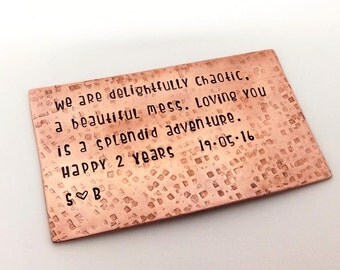 We are delightfully chaotic,
a beautiful mess. Loving you
is a splendid adventure.
Happy 2 Years 19.05.16
S♡B